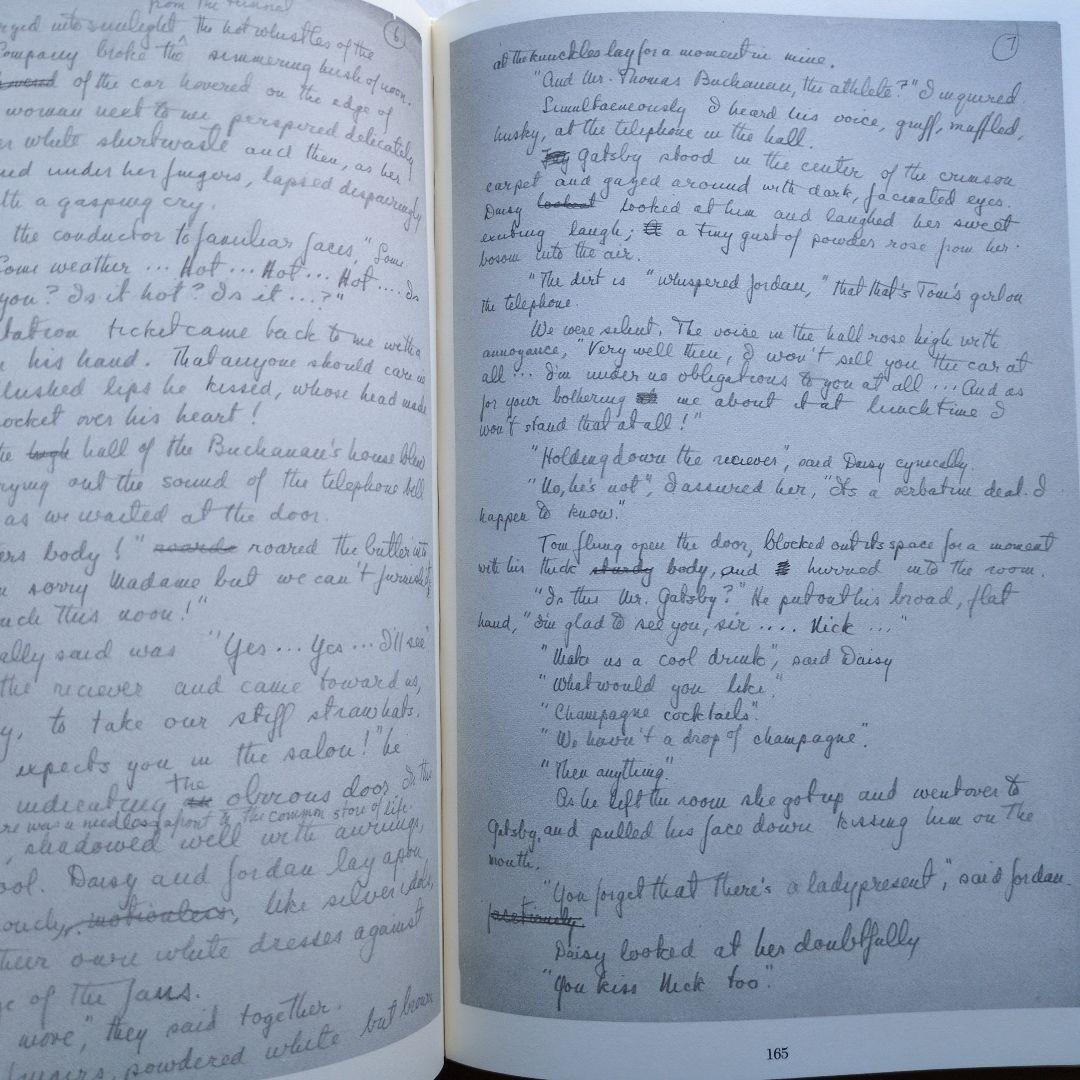 from the tunnel
erged into sunlight, the hot whistles of the
6
Company broke the simmering hush of noon.
of the car hovered on the edge of
woman next to me perspired delicately
er white shirtwaist and then, as her
ned under her fingers, lapsed despairingly
ith a gasping cry.
the conductor to familiar faces, "Some
Some weather ... Hot ... Hot ... Hot .... Is
you? Is it hot? Is it ...?"
tation ticket came back to me with a
his hand. That anyone should care in
lushed lips he kissed, whose head made
ocket over his heart!
he high hall of the Buchanan's house blew
rying out the sound of the telephone bell
as we waited at the door.
ers body!" roared the butler into
sorry Madame but we can't furnish it
uch this noon!"
ally said was "Yes ... Yes ... I'll see"
the reciever and came toward us,
y, to take our stiff straw hats.
expects you in the salon!" he
the
indicating obvious door. In this
re was a needless afront to the common store of life.
, shadowed well with awnings,
ool. Daisy and Jordan lay upon
ouch, motionless, like silver idols,
their own white dresses against
ze of the fans.
move", they said together.
fingers, powdered white but brown
7
at the knuckles lay for a moment in mine.
"And Mr. Thomas Buchanan, the athlete?" I inquired
Simultaeneously I heard his voice, gruff, muffled,
husky, at the telephone in the hall.
Gatsby stood in the center of the crimson
carpet and gazed around with dark, facinated eyes.
Daisy looked looked at him and laughed her sweet
exciting laugh; a tiny gust of powder rose from her
bosom into the air.
"The dirt is" whispered Jordan, "that that's Tom's girl on
the telephone.
We were silent. The voice in the hall rose high with
annoyance, "Very well then, I won't sell you the car at
all ... I'm under no obligations to you at all ... And as
for your bothering me about it at lunch time I
won't stand that at all!"
"Holding down the reciever", said Daisy cynically.
"No, he's not", I assured her, "Its a verbatim deal. I
happen to know."
Tom flung open the door, blocked out its space for a moment
with his thick sturdy body, and hurried into the room.
"Is this Mr. Gatsby?" He put out his broad, flat
hand, "I'm glad to see you, sir .... Nick ..."
"Make us a cool drink", said Daisy
"What would you like."
"Champagne cocktails".
"We havn't a drop of champagne".
"Then anything".
As he left the room she got up and went over to
Gatsby, and pulled his face down kissing him on the
mouth.
"You forget that there's a lady present", said Jordan.
facetiously.
Daisy looked at her doubtfully
"You kiss Nick too".
165